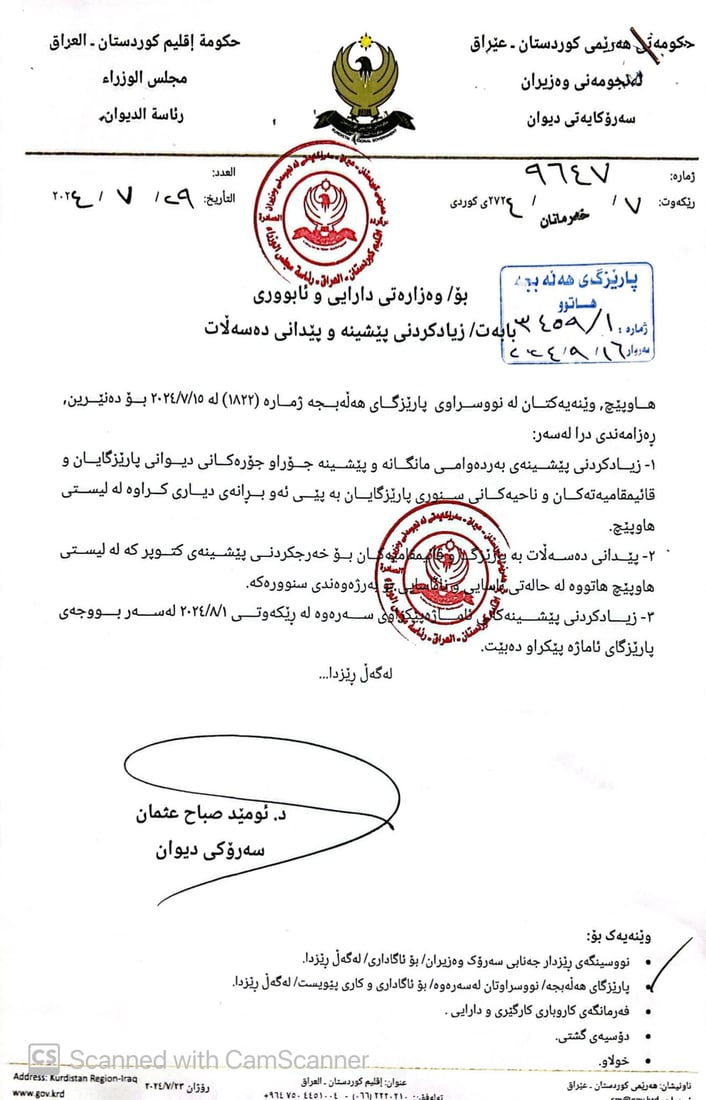 حکومەتی هەرێمی کوردستان ـ عێراق
ئەنجومەنی وەزیران
سەرۆکایەتی دیوان
حكومة إقليم كوردستان ـ العراق
مجلس الوزراء
رئاسة الديوان
KURDISTAN REGIONAL GOVERNMENT
ژمارە: ٩٦٤٧
رێکەوت: ٧/ خەرمانان /٢٧٢٤ی کوردی
العدد:
التأريخ: ٢٩/ ٧ / ٢٠٢٤
پارێزگەی هەڵەبجە
هاتوو
ژمارە: ٣٤٥٩/١
بەروار ٢٠٢٤/٩/١٦
بۆ/ وەزارەتی دارایی و ئابووری
بابەت/ زیادکردنی پێشینە و پێدانی دەسەڵات
هاوپێچ, وێنەیەکتان لە نووسراوی پارێزگای هەڵەبجە ژمارە (١٨٢٢) لە ٢٠٢٤/٧/١٥ بۆ دەنێرین,
ڕەزامەندی درا لەسەر:
١- زیادکردنی پێشینەی بەردەوامی مانگانە و پێشینە جۆراو جۆرەکانی دیوانی پارێزگایان و
قائیمقامیەتەکان و ناحیەکانی سنوری پارێزگایان بە پێی ئەو بڕانەی دیاری کراوە لە لیستی
هاوپێچ.
٢- پێدانی دەسەڵات بە پارێزگا و قائیمقامیەکان بۆ خەرجکردنی پێشینەی کتوپر کە لە لیستی
هاوپێچ هاتووە لە حالەتی ئاسایی و نائاسایی بۆ بەرژەوەندی سنوورەکە.
٣- زیادکردنی پێشینەکانی ئاماژەپێکراوی سەرەوە لە رێکەوتی ٢٠٢٤/٨/١ لەسەر بووجەی
پارێزگای ئاماژە پێکراو دەبێت.
لەگەڵ ڕێزدا...
د. ئومێد صباح عثمان
سەرۆکی دیوان
وێنەیەک بۆ:
• نووسینگەی ڕێزدار جەنابی سەرۆک وەزیران/ بۆ ئاگاداری/ لەگەڵ ڕێزدا.
• پارێزگای هەڵەبجە/ نووسراوتان لەسەرەوە/ بۆ ئاگاداری و کاری پێویست/ لەگەڵ ڕێزدا.
• فەرمانگەی کاروباری کارگێری و دارایی .
• دۆسیەی گشتی.
• خولاو.
CS Scanned with CamScanner
ناونیشان: هەرێمی کوردستان ـ عێراق
عنوان: إقليم كوردستان ـ العراق
رۆژان ٢٠٢٤/٧/٢٣
Address: Kurdistan Region-Iraq
www.gov.krd